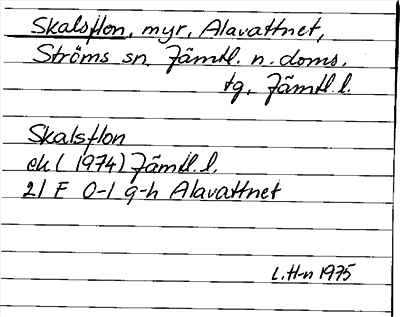 Skalsflon, myr, Alavattnet,
Ströms sn. Jämtl. n. doms.
tg, Jämtl. l.
Skalsflon
ek (1974) Jämtl. l.
21 F 0-1 g-h Alavattnet
L.H-n 1975